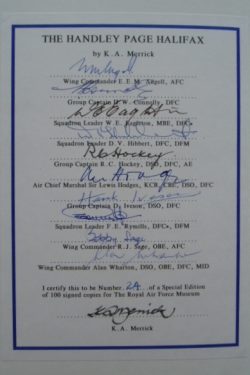 THE HANDLEY PAGE HALIFAX
by K. A. Merrick
Wing Commander E. E. M. Angell, AFC
Group Captain D. W. Connolly, DFC
Squadron Leader W. E. MBE, DFC
Squadron Leader D. V. Hibbert, DFC, DFM
R C Hockey
Group Captain R. C. Hockey, DSO, DFC, AE
Air Chief Marshal Sir Lewis Hodges, KCB, CBE, DSO, DFC
Hank Iverson
Group Captain D. Iverson, DSO, DFC
Squadron Leader F. E. DFC, DFM
Bobby Sage
Wing Commander R. J. Sage, OBE, AFC
Alan Wharton
Wing Commander Alan Wharton, DSO, OBE, DFC, MID
I certify this to be Number 2A of a Special Edition
of 100 signed copies for The Royal Air Force Museum
K A Merrick
K. A. Merrick